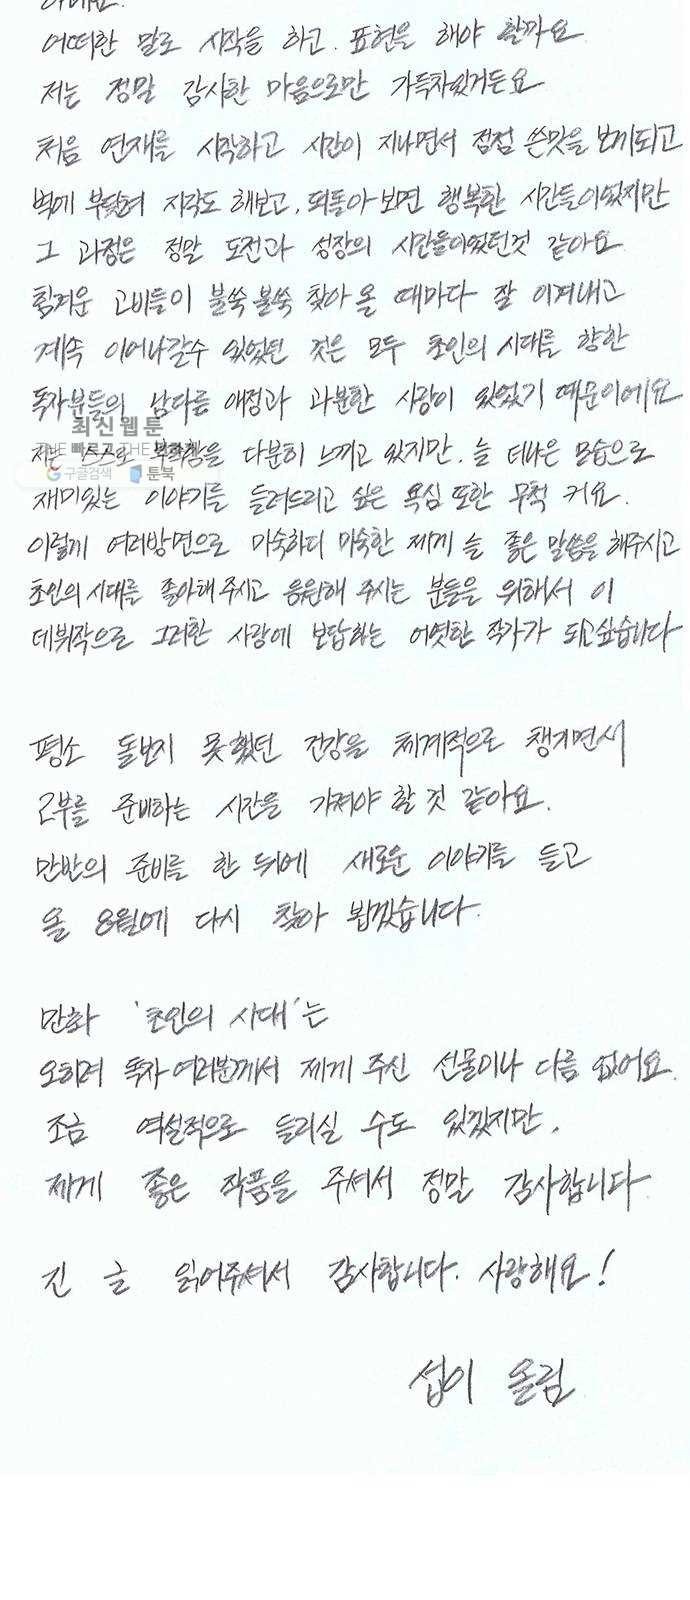 어떠한 말로 시작을 하고. 표현을 해야 할까요.
저는 정말 감사한 마음으로만 가득차있거든요
처음 연재를 시작하고 시간이 지나면서 점점 쓴맛을 보게되고
벽에 부딪혀 지각도 해보고, 되돌아 보면 행복한 시간들이었지만
그 과정은 정말 도전과 성장의 시간들이었던것 같아요
힘겨운 고비들이 불쑥불쑥 찾아 올 때마다 잘 이겨내고
계속 이어나갈수 있었던 것은 모두 초인의 시대를 향한
독자분들의 남다름 애정과 과분한 사랑이 있었기 때문이에요
최신웹툰
저는 스스로 부족함을 다분히 느끼고 있지만. 늘 더나은 모습으로
구글검색 툰북
재미있는 이야기를 들려드리고 싶은 욕심 또한 무척 커요.
이렇게 여러방면으로 미숙하디 미숙한 제게 늘 좋은 말씀을 해주시고
초인의 시대를 좋아해 주시고 응원해 주시는 분들을 위해서 이
데뷔작으로 그러한 사랑에 보답하는 어엿한 작가가 되고싶습니다
평소 돌보지 못했던 건강을 체계적으로 챙기면서
2부를 준비하는 시간을 가져야 할 것 같아요.
만반의 준비를 한 뒤에 새로운 이야기를 들고
올 8월에 다시 찾아 뵙겠습니다.
만화 '초인의 시대'는
오히려 독자 여러분께서 제게 주신 선물이나 다름 없어요.
조금 역설적으로 들리실 수도 있겠지만,
제게 좋은 작품을 주셔서 정말 감사합니다
긴 글 읽어주셔서 감사합니다. 사랑해요!
섭이 올림